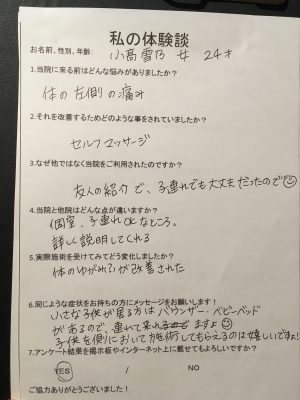 私の体験談
お名前、性別、年齢: 小高雪乃 女 24才
1.当院に来る前はどんな悩みがありましたか?
体の左側の痛み
2.それを改善するためどのような事をされていましたか?
セルフマッサージ
3.なぜ他ではなく当院をご利用されたのですか?
友人の紹介で、子連れでも大丈夫だったので
4.当院と他院はどんな点が違いますか?
個室、子連れOKなところ。
詳しく説明してくれる
5.実際施術を受けてみてどう変化しましたか?
体のゆがみが改善された
6.同じような症状をお持ちの方にメッセージをお願いします!
小さな子供が居る方はバウンサー・ベビーベッド
があるので、連れて来れますよ
子供を側において施術してもらえるのは嬉しいですよ!
7.アンケート結果を掲示板やインターネット上に載せてもよろしいですか?
YES / NO
ご協力ありがとうございました!